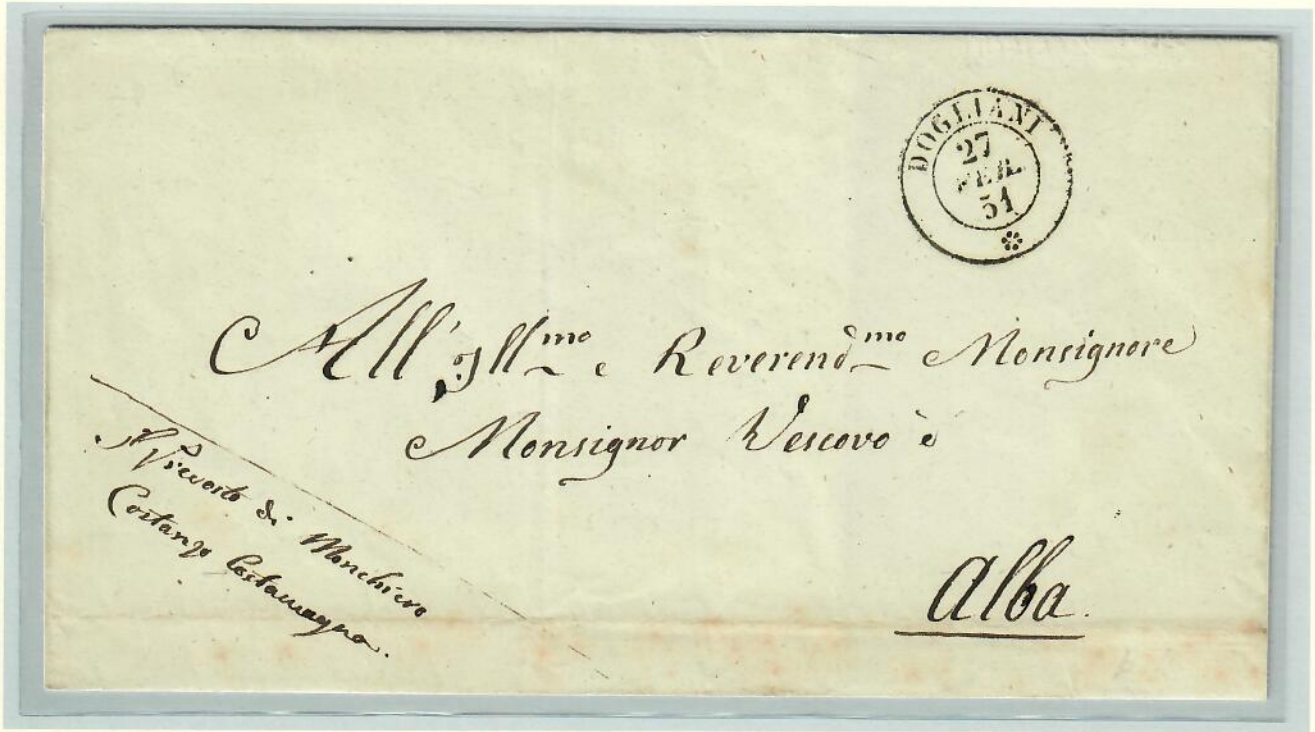 DOGLIANI
27
FEB.
51
All' Ill.mo e Reverend.mo Monsignore
Monsignor Vescovo è
Alba.
Il Prevosto di Monchiero
Costanzo Costamagna.